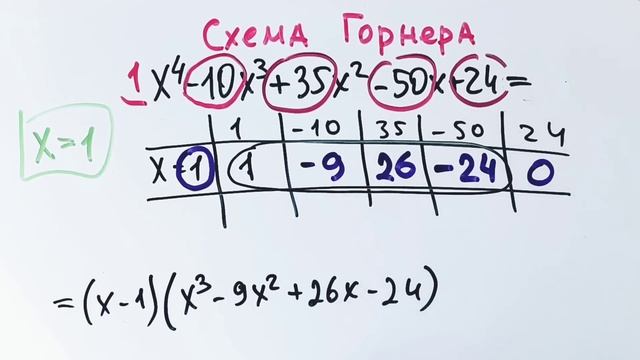 Схема Горнера
1x⁴-10x³+35x²-50x+24=
x=1
1 -10 35 -50 24
x-1 1 -9 26 -24 0
=(x-1)(x³-9x²+26x-24)